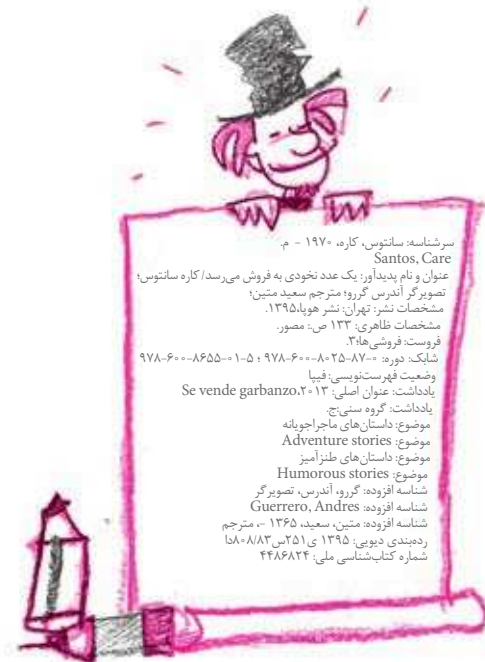 سرشناسه: سانتوس، کاره، ۱۹۷۰ - م.
Santos, Care
عنوان و نام پدیدآور: یک عدد نخودی به فروش می‌رسد/ کاره سانتوس؛
تصویرگر آندرس گررو؛ مترجم سعید متین؛
مشخصات نشر: تهران: نشر هوپا،۱۳۹۵.
مشخصات ظاهری: ۱۳۳ ص.: مصور.
فروست: فروشی‌ها؛۳.
شابک: دوره: ۰-۸۷-۸۰۲۵-۶۰۰-۹۷۸ ؛ ۵-۰۱-۸۶۵۵-۶۰۰-۹۷۸
وضعیت فهرست‌نویسی: فیپا
یادداشت: عنوان اصلی: Se vende garbanzo،۲۰۱۳
یادداشت: گروه سنی:ج.
موضوع: داستان‌های ماجراجویانه
موضوع: Adventure stories
موضوع: داستان‌های طنزآمیز
موضوع: Humorous stories
شناسه افزوده: گررو، آندرس، تصویرگر
شناسه افزوده: Guerrero, Andres
شناسه افزوده: متین، سعید، ۱۳۶۵ -، مترجم
رده‌بندی دیویی: ۱۳۹۵ ی۲۵۱س۸۰۸/۸۳دا
شماره کتاب‌شناسی ملی: ۴۴۸۶۸۲۴